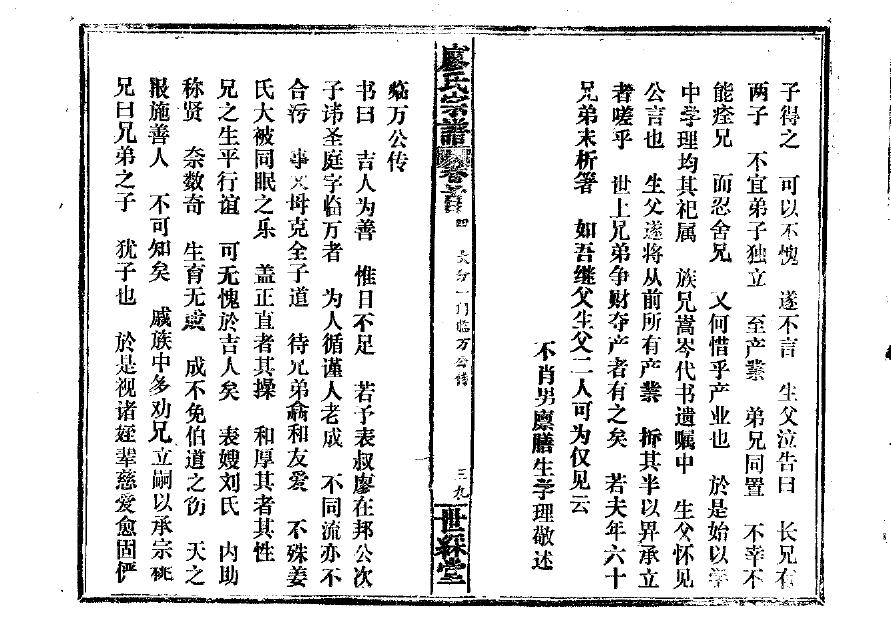 子得之 可以不愧 遂不言 生父泣告曰 长兄有
两子 不宜弟子独立 至产業 弟兄同置 不幸不
能痊兄 而忍舍兄 又何惜乎产业也 於是始以学
中学理均其祀属 族兄嵩岑代书遗嘱中 生父怀见
公言也 生父遂将从前所有产業 拆其半以畀承立
者嗟乎 世上兄弟争财夺产者有之矣 若夫年六十
兄弟未析箸 如吾继父生父二人可为仅见云
不肖男廪膳生学理敬述
廖氏宗譜 四 长分一门临万公传 三九 世綵堂
临万公传
书曰 吉人为善 惟日不足 若予表叔廖在邦公次
子讳圣庭字临万者 为人循谨人老成 不同流亦不
合污 事父母克全子道 待兄弟龠和友爱 不殊姜
氏大被同眠之乐 盖正直者其操 和厚其者其性
兄之生平行谊 可无愧於吉人矣 表嫂刘氏 内助
称贤 奈数奇 生育无或 成不免伯道之伤 天之
报施善人 不可知矣 戚族中多劝兄立嗣以承宗祧
兄曰兄弟之子 犹子也 於是视诸姪辈慈爱愈固俨